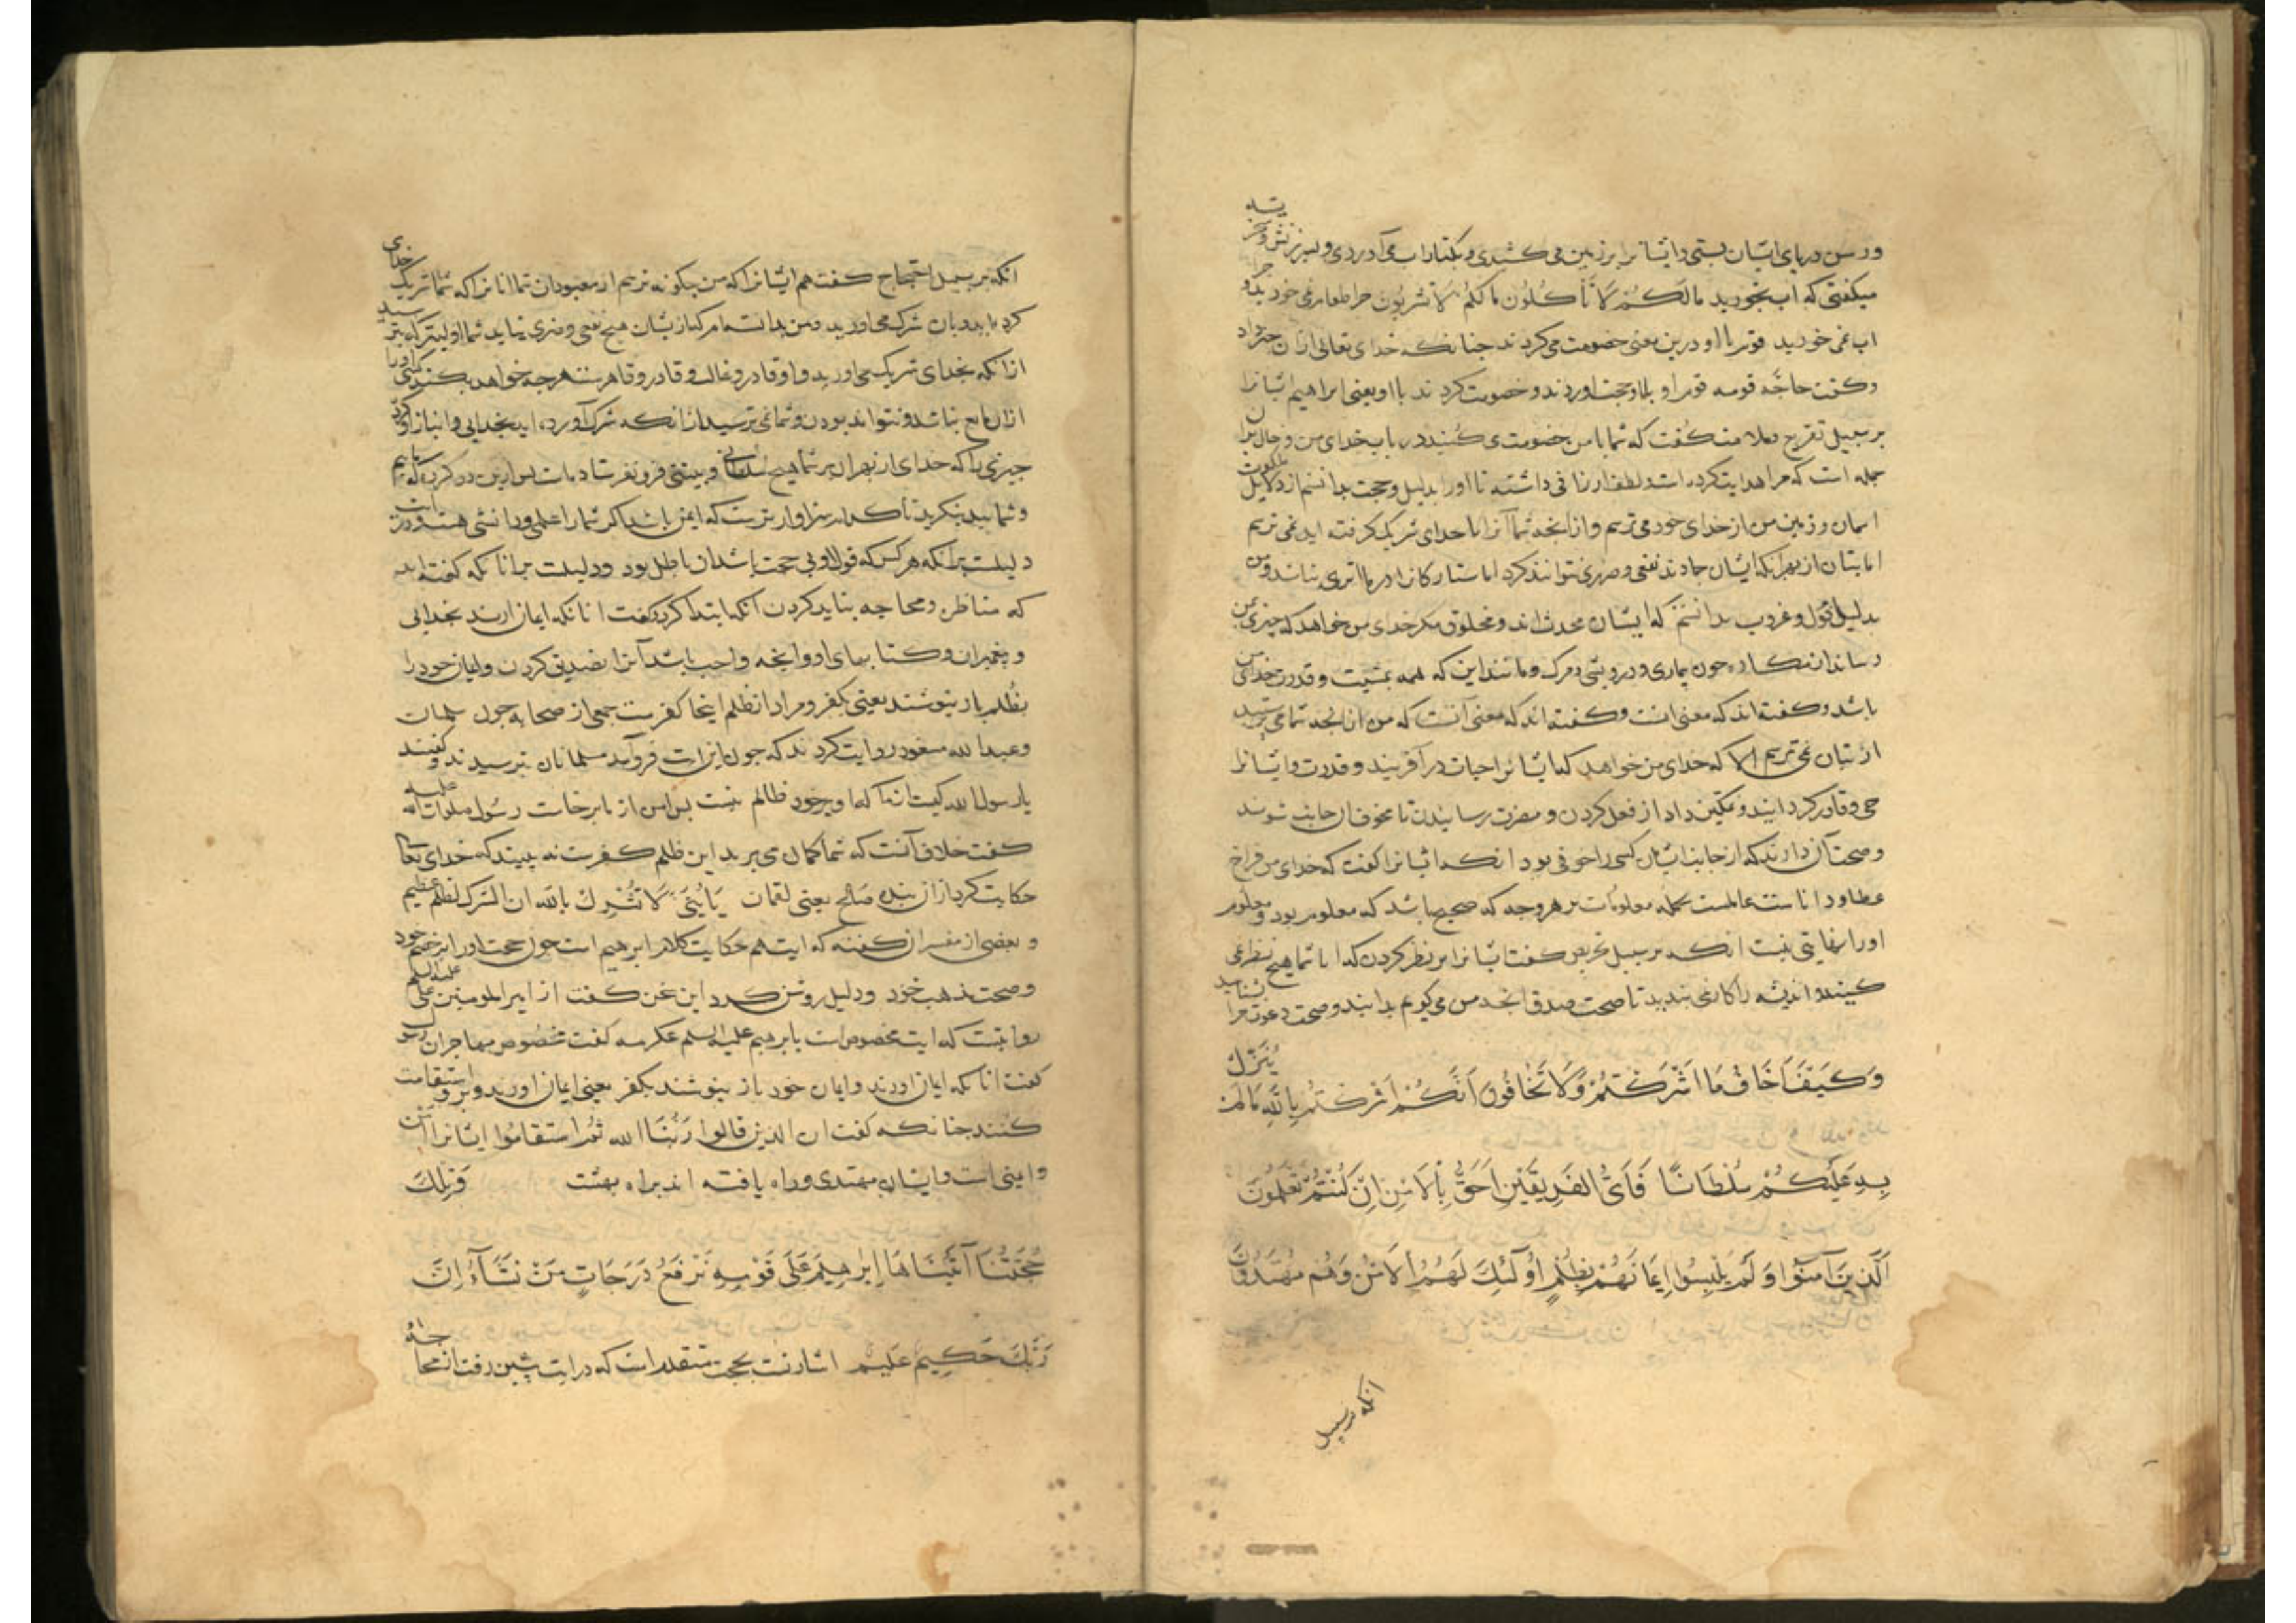 ورسن درپای ایشان بستی و ایشانرا بر زمین می کشیدی و بکنار اب می آوردی و بسرزنش وسخریه
میکفتی که اب بخورید مالکم لا تأکلون مالکم لا تشربون چرا طعام نمی خورید و چرا
اب نمی خورید قوم با او درین معنی خصومت می کردند جنانکه خدای تعالی ازان خبر داد
وکفت حاجّه قومه قوم او با او حجت اوردند و خصومت کردند با او یعنی ابراهیم ایشانرا
بر سبیل تقریع و ملامت کفت که شما با من خصومت می کنید در باب خدای من و حال ان
جمله است که مرا هدایت کرده است و لطف ارزانی داشته تا او را بدلیل و حجت بدانستم از دلایل ملکوت
اسمان و زمین من از خدای خود می ترسم و از انجه شما آنرا با خدای شریک کرفته اید نمی ترسم
اما بتان از بهر انکه ایشان جمادند نفعی و ضرری نتوانند کرد اما ستارکانرا در ما اثری نباشد و من
بدلیل افول و غروب بدانستم که ایشان محدث اند و مخلوق مکر خدای من خواهد که جیزی بمن
رساند از مکاره جون بیماری و درویشی و مرک و مانند این که همه بمشیت و قدرت خدای من
باشد وکفته اند که معنی انست وکفته اند که معنی آنست که من از انجه شما می پرستید
از بتان نمی ترسم الا که خدای من خواهد که ایشانرا حیات در آفریند و قدرت و ایشانرا
حی و قادر کرداند و تمکین داد از فعل کردن و مضرت رسانیدن تا مخوفان خایف شوند
وصحت آن دارند که از جانب ایشان کسی را خوفی بود انکه ایشانرا کفت که خدای من فراخ
عطا و داناست عالمست بجمله معلومات بر هر وجه که صحیح باشد که معلوم بود و معلوم
او را نهایتی نیست انکه بر سبیل تحریص کفت ایشانرا بر نظر کردن که ایا شما هیج نظر نمی
کنید و اندیشه را کار نمی بندید تا صحت صدق انجه من می کویم بدانید و صحت دعوت مرا بشناسید
وَكَيْفَ أَخَافُ مَا أَشْرَكْتُمْ وَلَا تَخَافُونَ أَنَّكُمْ أَشْرَكْتُمْ بِاللَّهِ مَا لَمْ يُنَزِّلْ
بِهِ عَلَيْكُمْ سُلْطَانًا فَأَيُّ الْفَرِيقَيْنِ أَحَقُّ بِالْأَمْنِ إِنْ كُنْتُمْ تَعْلَمُونَ
الَّذِينَ آمَنُوا وَلَمْ يَلْبِسُوا إِيمَانَهُمْ بِظُلْمٍ أُولَٰئِكَ لَهُمُ الْأَمْنُ وَهُمْ مُهْتَدُونَ
انکه بر سبیل
انکه بر سبیل احتجاج کفت هم ایشانرا که من جکونه ترسم از معبودان شما انانرا که شما شریک خدای
کرده اید و بان شرک می اورید و من بدانسته ام که از یشان هیج نفعی و ضرری نیاید شما اولیترکه بترسید
از انکه بخدای شریک می اورید و او قادر و غالب و قادر و قاهرست هرجه خواهد بکند کسی او را
ازان مانع نباشد و نتواند بودن و شما نمی ترسید از انکه شرک آورده اید بخدایی و انباز او کرده
جیزی را که خدای از بهر ان بر شما هیج سلطانی و بینتی فرو نفرستاده است پس ازین دو کروه که ماییم
و شمایید بنکرید تا کدام سزاوارترست که ایمن باشد اکر شما را علمی و دانشی هست و درین ایت
دلیلست برانکه هر کس که قول او بی حجت باشد ان باطل بود و دلیلست بر انانکه کفته اند
که مناظره و محاجه نباید کردن انکه ابتدا کرد و کفت انانکه ایمان ارند بخدایی
و پیغمبران و کتابهای او و انجه واجب باشد آنرا تصدیق کردن و ایمان خود را
بظلم باز نپوشند یعنی بکفر و مراد از ظلم اینجا کفرست جمعی از صحابه جون سلمان
وعبدالله مسعود روایت کردند که جون این ایت فرو آمد مسلمانان بترسیدند و کفتند
یا رسول الله کیست از ما که او بر خود ظالم نیست پس امن از ما برخاست رسول صلوات الله علیه
کفت خلاف آنست که شما کمان می برید این ظلم کفرست نه بینید که خدای تعالی
حکایت کرد از ان بنده صالح یعنی لقمان یَا بُنَیَّ لَا تُشْرِكْ بالله ان الشرك لظلم عظیم
و بعضی از مفسران کفتند که ایت هم حکایت کلام ابراهیم است جون حجت اورد بر خصم خود
وصحت مذهب خود و دلیل روشن کرد این سخن کفت از امیرالمومنین علی علیه السلم
روایتست که ایت مخصوص است بابرهیم علیه السلم عکرمه کفت مخصوص بمهاجران رسول
کفت انانکه ایمان اورند و ایمان خود باز نپوشند بکفر یعنی ایمان اورند و برو استقامت
کنند جنانکه کفت ان الذین قالوا ربنا الله ثم استقاموا ایشانرا امن
و ایمنی است و ایشان مهتدی و راه یافته اند براه بهشت وَتِلْكَ
حُجَّتُنَا آتَيْنَاهَا إِبْرَاهِيمَ عَلَى قَوْمِهِ نَرْفَعُ دَرَجَاتٍ مَنْ نَشَاءُ إِنَّ
رَبَّكَ حَكِيمٌ عَلِيمٌ اشارتست بحجت متقدم است که در ایت پیشین رفت از محاجه